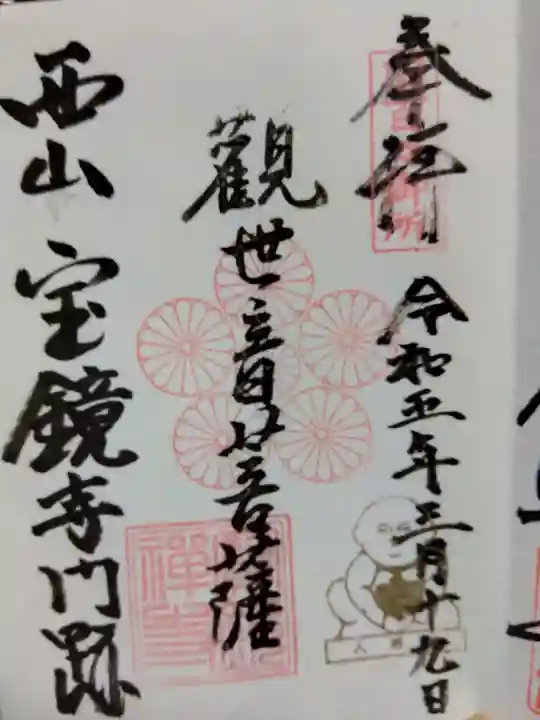 奉拝 令和五年三月十九日
百々御所
觀世音菩薩
西山 宝鏡寺門跡